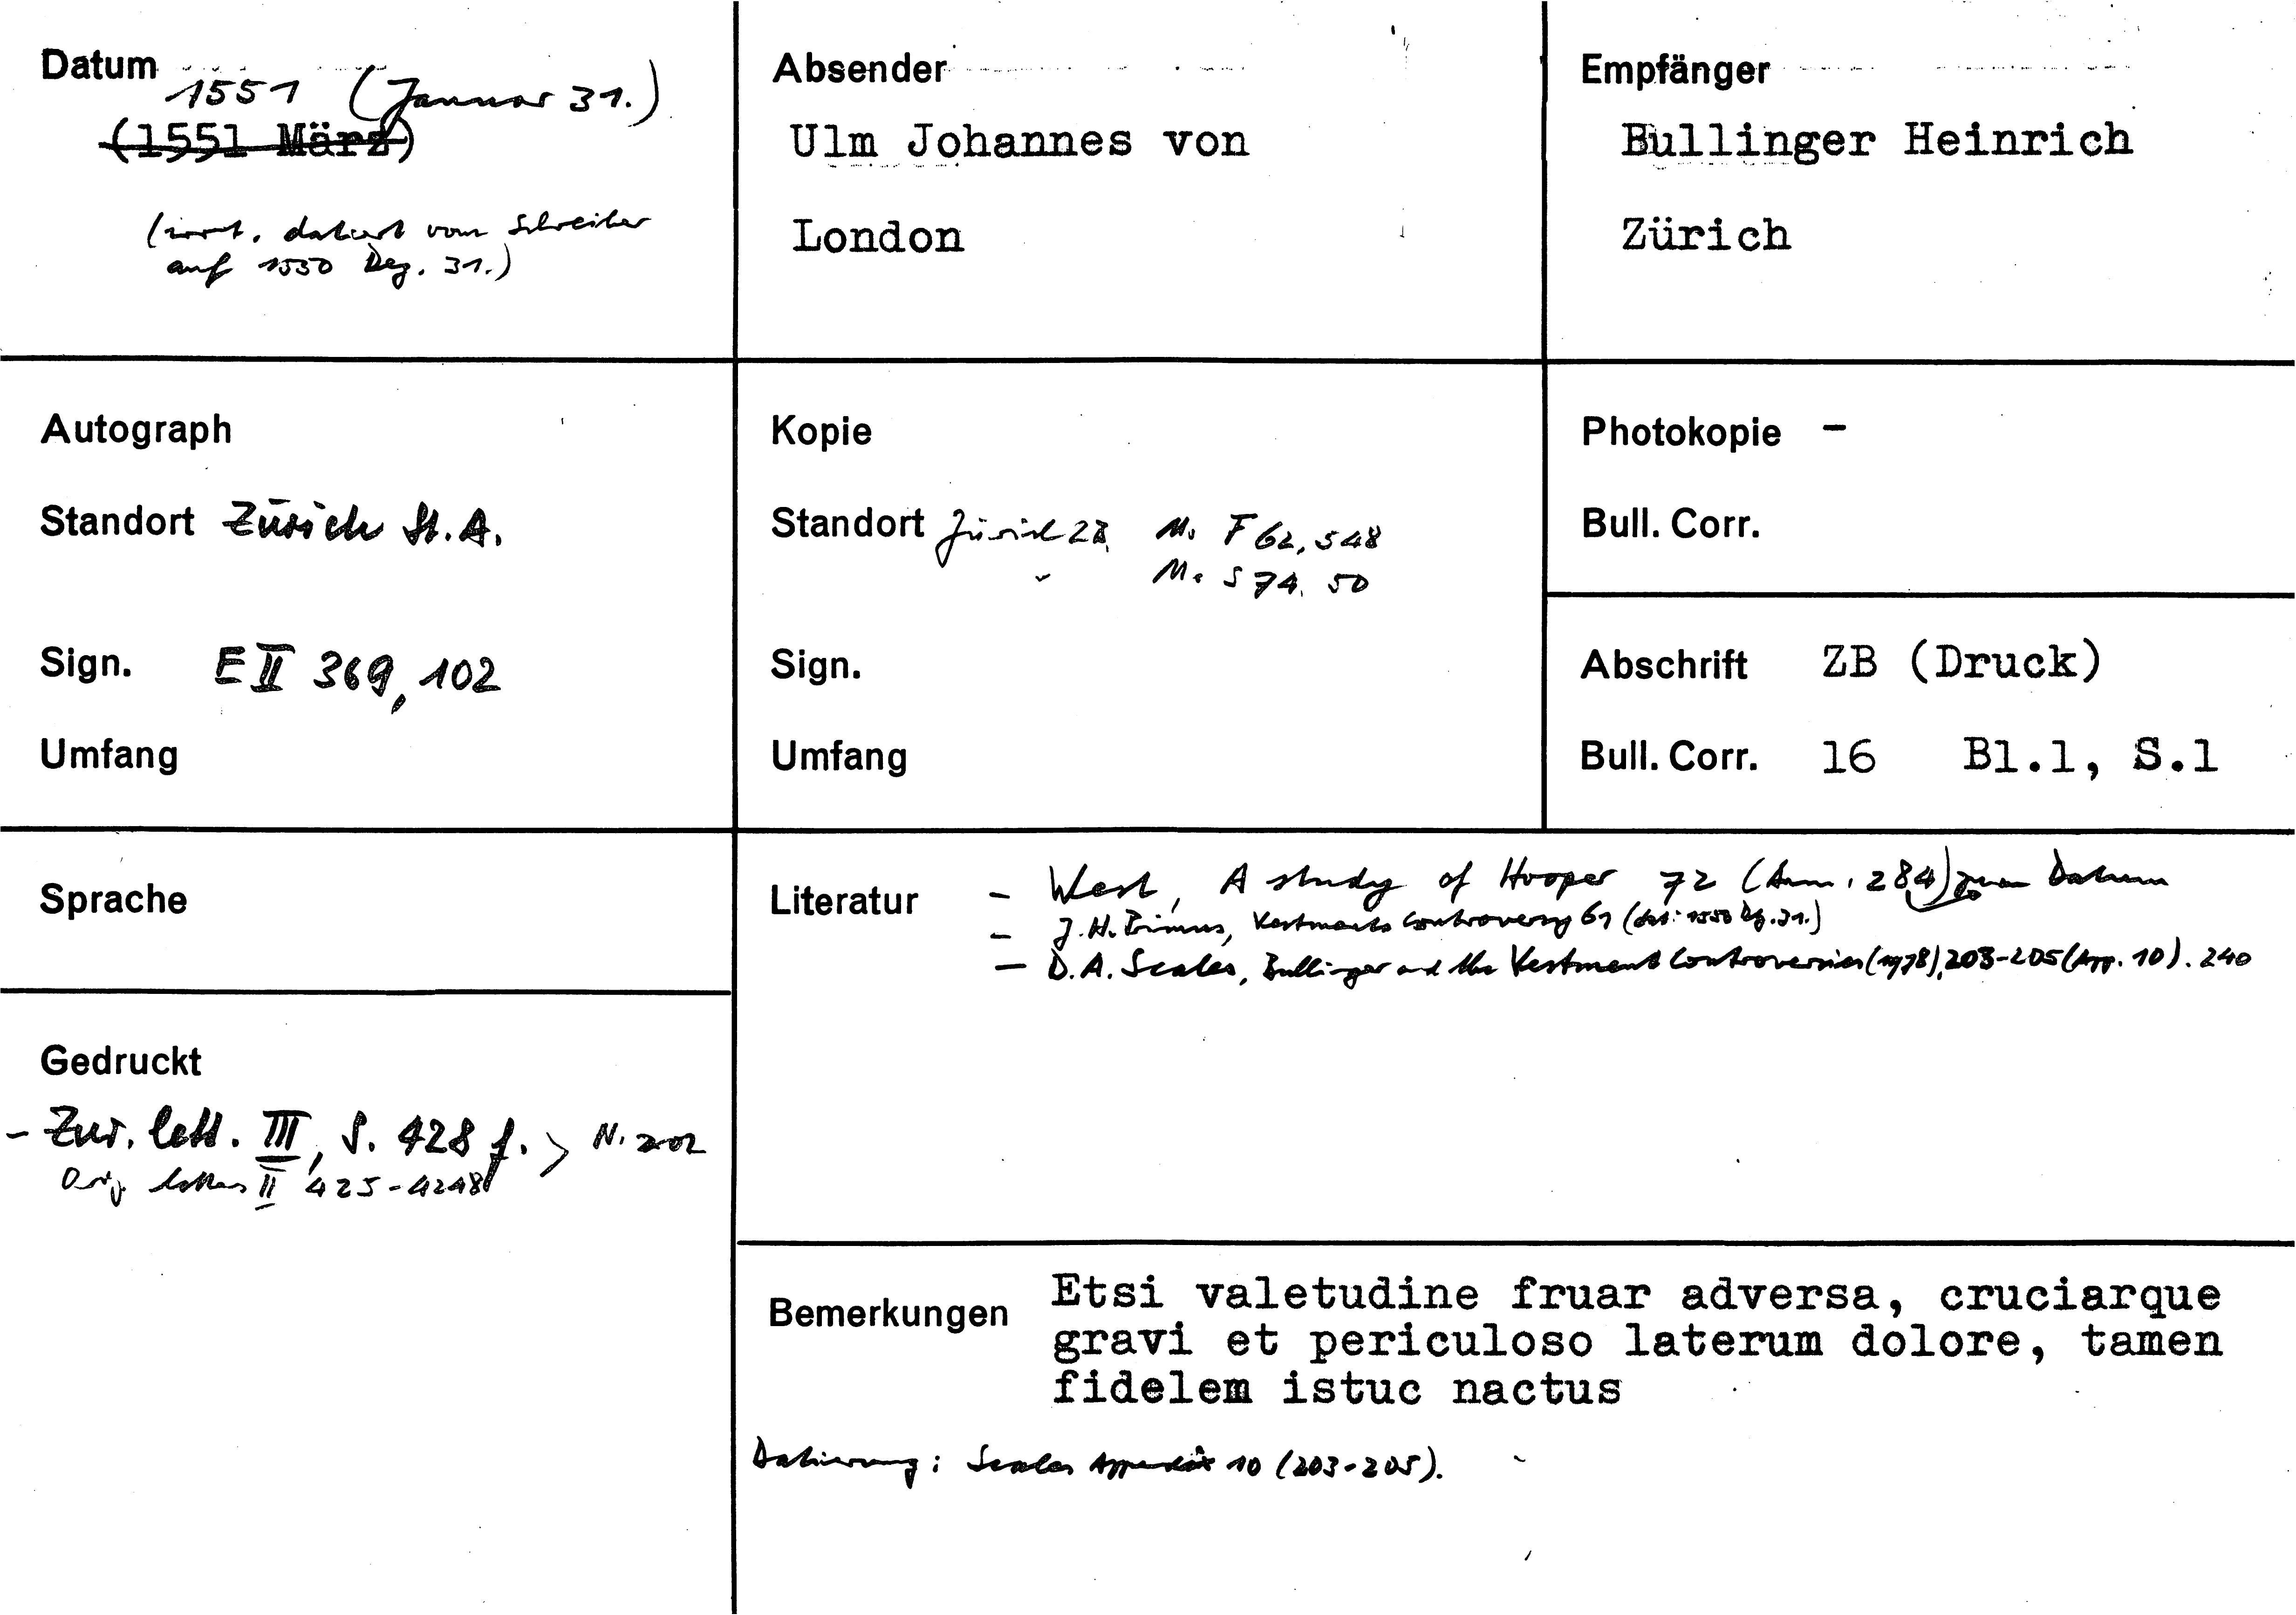 Datum 1551 (Januar 31.)
(1551 März)
(irrt. datiert vom Schreiber
auf 1550 Dez. 31.)
Absender
Ulm Johannes von
London
Empfänger
Bullinger Heinrich
Zürich
Autograph
Standort Zürich St. A.
Sign. E II 369, 102
Umfang
Kopie
Standort Zürich ZB, Ms F 62, 548
" Ms S 74, 50
Sign.
Umfang
Photokopie –
Bull. Corr.
Abschrift ZB (Druck)
Bull. Corr. 16 Bl.1, S.1
Sprache
Gedruckt
- Zur. lett. III, S. 428 f. > N. 202
Orig. letters II 425-428
Literatur – West, A study of Hooper 72 (Anm. 284) zum Datum
– J.H. Primus, Vestments Controversy 61 (dat: 1550 Dez. 31.)
– D.A. Scales, Bullinger and the Vestment Controversies (1978), 203-205 (App. 10). 240
Bemerkungen Etsi valetudine fruar adversa, cruciarque
gravi et periculoso laterum dolore, tamen
fidelem istuc nactus
Datierung: Scales Appendix 10 (203-205).